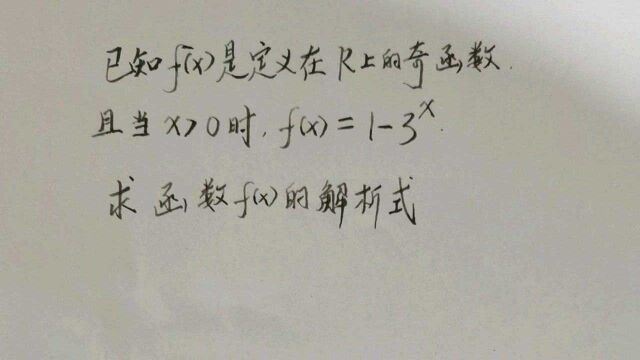 已知f(x)是定义在R上的奇函数.
且当x>0时,f(x)=1-3^x.
求函数f(x)的解析式